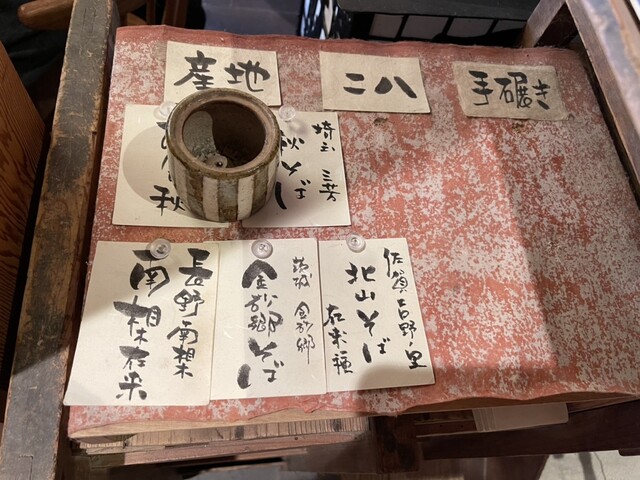 産地
二八
手碾き
埼玉 三芳
秋そば
秋
長野 南相木
南相木在来
茨城 金砂郷
金砂郷そば
佐賀 吉野里
北山そば
在来種